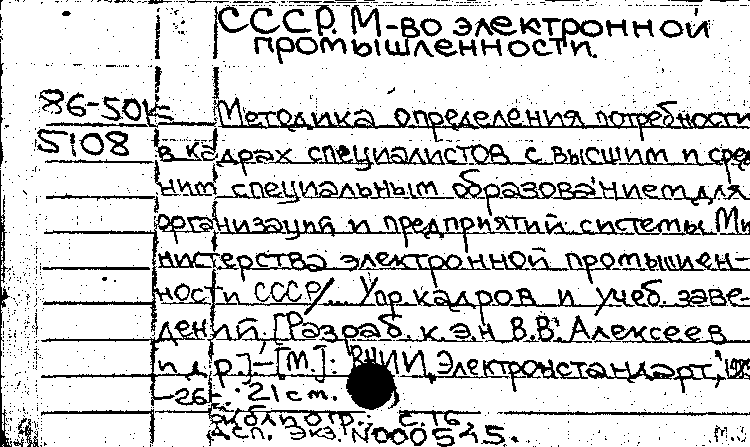 СССР. М-во электронной
промышленности.
86-501
5108
Методика определения потребности
в кадрах специалистов с высшим и сред
ним специальным образованием для
организаций и предприятий системы Ми
нистерства электронной промышлен-
ности СССР/... Упр кадров и учеб. заве
дений, [Разраб. к.э.н В.В. Алексеев
и др.]-[М.]: ВНИИ "Электронстандарт",
-26 с. 21 см.
Библиогр.: с. 16.
Асп. экз. N000545.